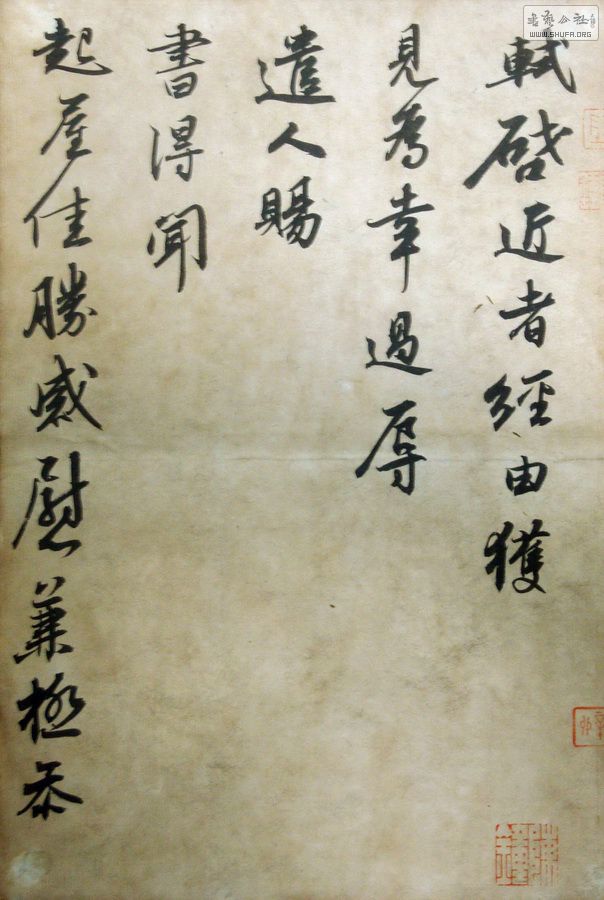 軾啓近者經由獲
見為幸過辱
遣人賜
書得聞
起居佳勝感慰兼極忝
WWW.SHUFA.ORG